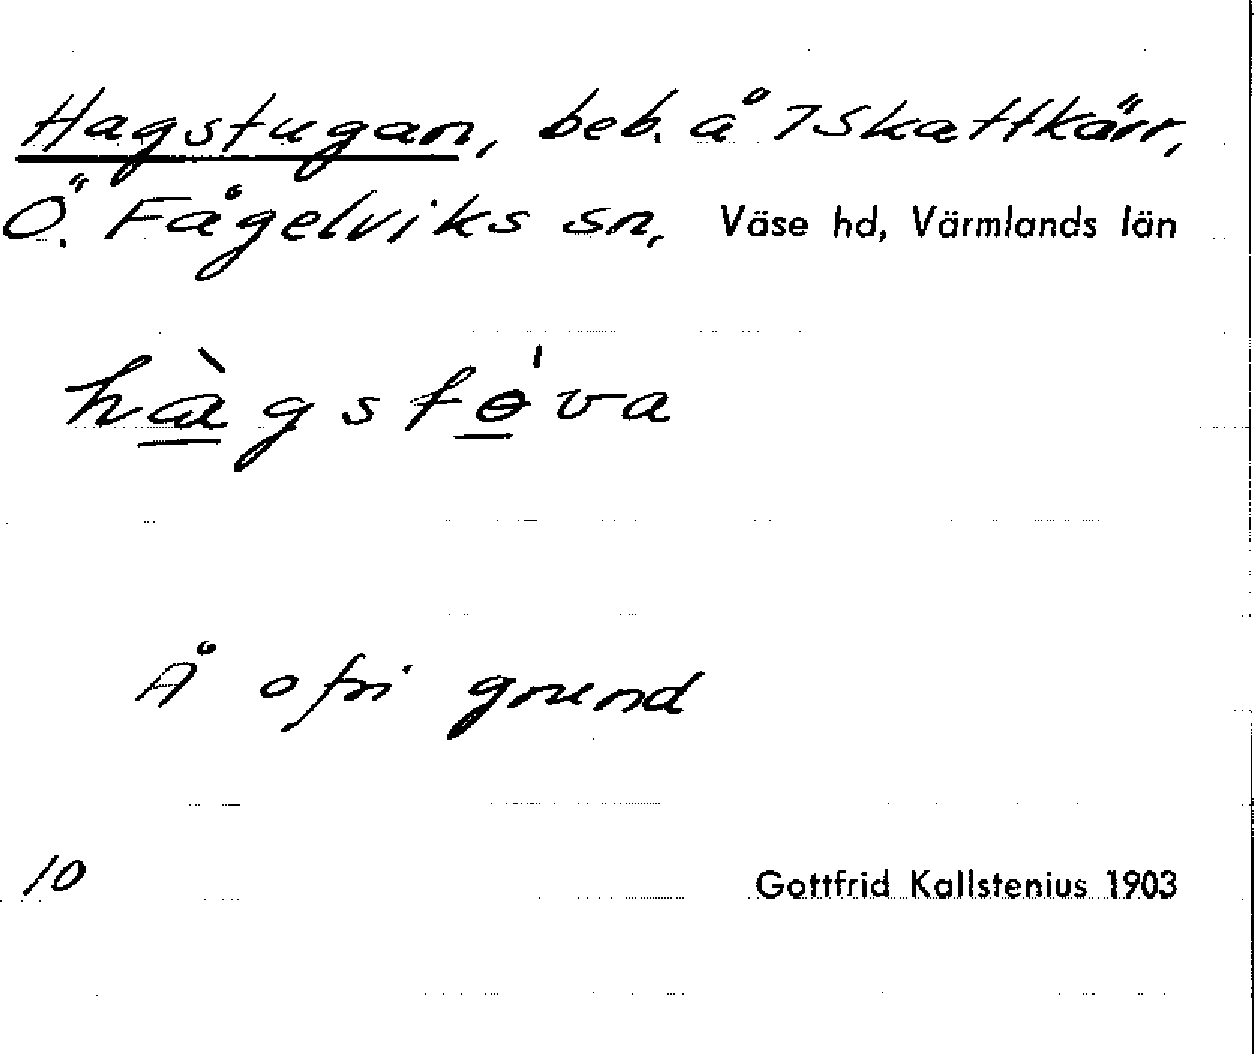 Hagstugan, beb. å 7 Skattkärr,
Ö. Fågelviks sn, Väse hd, Värmlands län
hàgstɵ'va
Å ofri grund
10
Gottfrid Kallstenius 1903